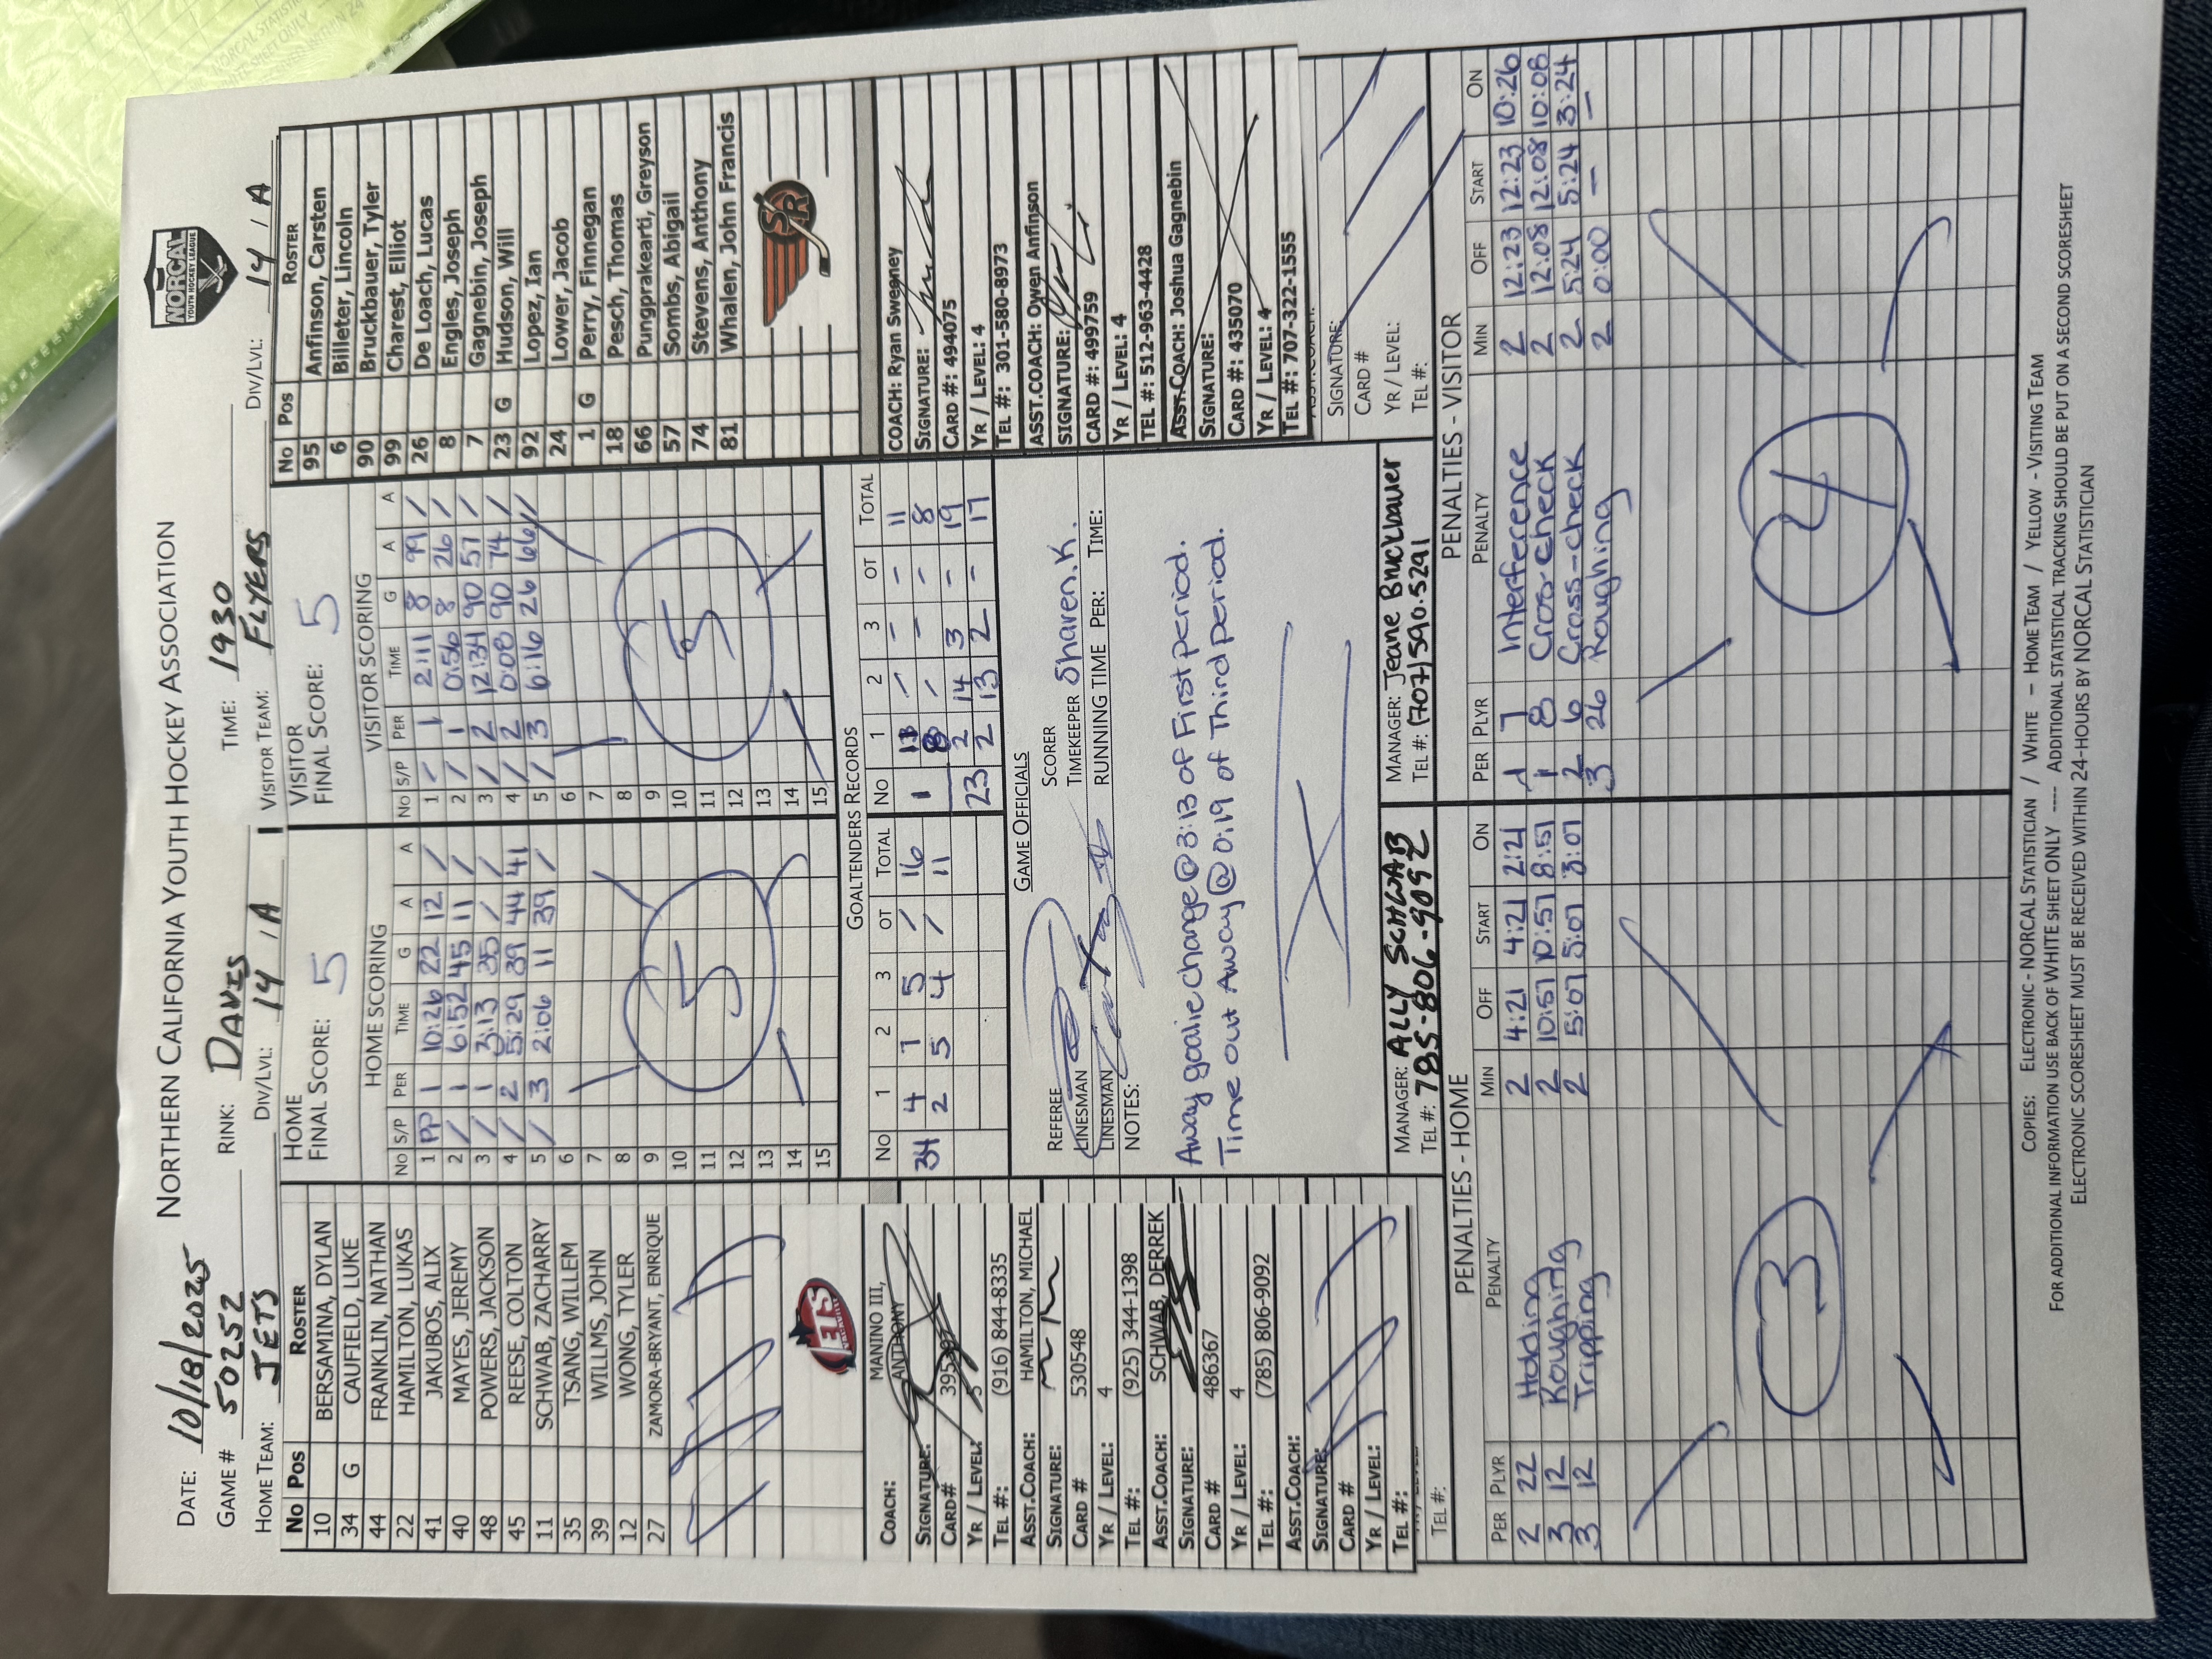 NORTHERN CALIFORNIA YOUTH HOCKEY ASSOCIATION
NORCAL
YOUTH HOCKEY LEAGUE
DATE: 10/18/2025
GAME # 50252 RINK: DAVIS TIME: 1930
HOME TEAM: JETS DIV/LVL: 14 / A VISITOR TEAM: FLYERS DIV/LVL: 14 / A
No Pos ROSTER
10 BERSAMINA, DYLAN
34 G CAUFIELD, LUKE
44 FRANKLIN, NATHAN
22 HAMILTON, LUKAS
41 JAKUBOS, ALIX
40 MAYES, JEREMY
48 POWERS, JACKSON
45 REESE, COLTON
11 SCHWAB, ZACHARRY
35 TSANG, WILLEM
39 WILLMS, JOHN
12 WONG, TYLER
27 ZAMORA-BRYANT, ENRIQUE
JETS
VACAVILLE
HOME
FINAL SCORE: 5
HOME SCORING
NO S/P PER TIME G A A
1 PP 1 10:26 22 12 /
2 / 1 6:52 45 11 /
3 / 1 3:13 35 / /
4 / 2 5:29 39 44 41
5 / 3 2:06 11 39 /
6
7
8
9
10
11
12
13
14
15
5
VISITOR
FINAL SCORE: 5
VISITOR SCORING
NO S/P PER TIME G A A
1 / 1 2:11 8 99 /
2 / 1 0:56 8 26 /
3 / 2 12:34 90 57 /
4 / 2 0:08 90 74 /
5 / 3 6:16 26 66 /
6
7
8
9
10
11
12
13
14
15
5
No Pos ROSTER
95 Anfinson, Carsten
6 Billeter, Lincoln
90 Bruckbauer, Tyler
99 Charest, Elliot
26 De Loach, Lucas
8 Engles, Joseph
7 Gagnebin, Joseph
23 G Hudson, Will
92 Lopez, Ian
24 Lower, Jacob
1 G Perry, Finnegan
18 Pesch, Thomas
66 Pungprakearti, Greyson
57 Sombs, Abigail
74 Stevens, Anthony
81 Whalen, John Francis
SR
COACH: MANINO III, ANTHONY
SIGNATURE:
CARD# 395397
YR / LEVEL: 5
TEL #: (916) 844-8335
ASST.COACH: HAMILTON, MICHAEL
SIGNATURE:
CARD # 530548
YR / LEVEL: 4
TEL #: (925) 344-1398
ASST.COACH: SCHWAB, DERREK
SIGNATURE:
CARD # 486367
YR / LEVEL: 4
TEL #: (785) 806-9092
ASST.COACH:
SIGNATURE:
CARD #
YR / LEVEL:
TEL #:
TEL #:
GOALTENDERS RECORDS
NO 1 2 3 OT TOTAL NO 1 2 3 OT TOTAL
34 4 7 5 / 16 1 13 / - - 11
2 5 4 / 11 8 / - - 8
2 14 3 - 19
23 2 13 2 - 17
GAME OFFICIALS
REFEREE SCORER
LINESMAN TIMEKEEPER Sharen.K.
LINESMAN RUNNING TIME PER: TIME:
NOTES:
Away goalie change @ 3:13 of First period.
Time out Away @ 0:19 of Third period.
MANAGER: ALLY SCHWAB
TEL #: 785-806-9092
MANAGER: Jeane Bruckbauer
TEL #: (707) 590.5291
COACH: Ryan Sweeney
SIGNATURE:
CARD #: 494075
YR / LEVEL: 4
TEL #: 301-580-8973
ASST.COACH: Owen Anfinson
SIGNATURE:
CARD #: 499759
YR / LEVEL: 4
TEL #: 512-963-4428
ASST.COACH: Joshua Gagnebin
SIGNATURE:
CARD #: 435070
YR / LEVEL: 4
TEL #: 707-322-1555
ASST.COACH:
SIGNATURE:
CARD #
YR / LEVEL:
TEL #:
PENALTIES - HOME
PER PLYR PENALTY MIN OFF START ON
2 22 Holding 2 4:21 4:21 2:21
3 12 Roughing 2 10:57 10:57 8:57
3 12 Tripping 2 5:07 5:07 3:07
3
PENALTIES - VISITOR
PER PLYR PENALTY MIN OFF START ON
1 7 Interference 2 12:23 12:23 10:26
1 8 Cross-check 2 12:08 12:08 10:08
2 6 Cross-check 2 5:24 5:24 3:24
3 26 Roughing 2 0:00 — —
4
COPIES: ELECTRONIC - NORCAL STATISTICIAN / WHITE – HOME TEAM / YELLOW - VISITING TEAM
FOR ADDITIONAL INFORMATION USE BACK OF WHITE SHEET ONLY ---- ADDITIONAL STATISTICAL TRACKING SHOULD BE PUT ON A SECOND SCORESHEET
ELECTRONIC SCORESHEET MUST BE RECEIVED WITHIN 24-HOURS BY NORCAL STATISTICIAN